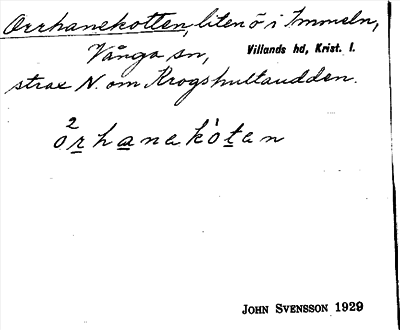 Orrhanekotten, liten ö i Immeln,
Vånga sn, Villands hd, Krist. l.
strax N. om Krogshultaudden.
2
òrhanekòten
JOHN SVENSSON 1929